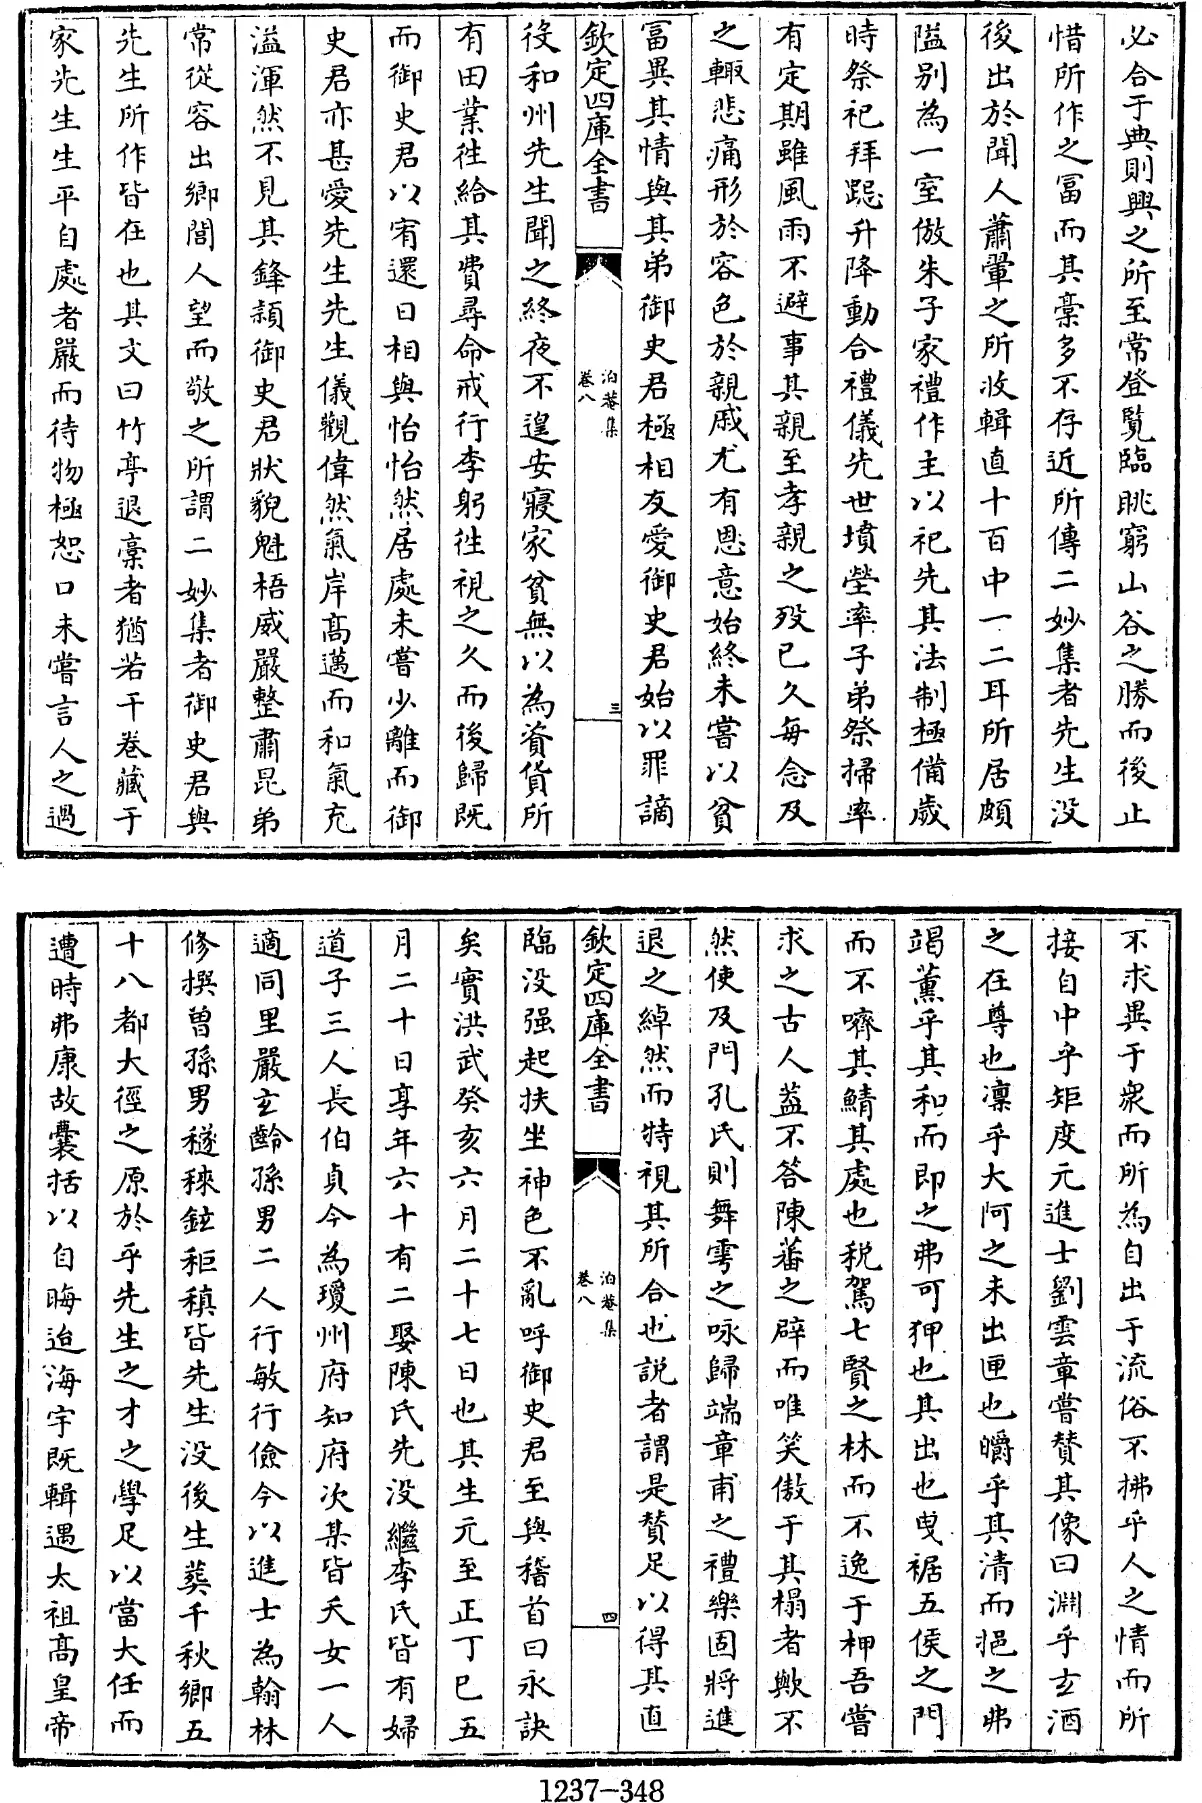 必合于典則興之所至常登覽臨眺窮山谷之勝而後止
惜所作之富而其稾多不存近所傳二妙集者先生没
後出於聞人蕭翬之所收輯直十百中一二耳所居頗
隘别為一室倣朱子家禮作主以祀先其法制極備歲
時祭祀拜跽升降動合禮儀先世墳塋率子弟祭掃率
有定期雖風雨不避事其親至孝親之殁已久每念及
之輙悲痛形於容色於親戚尤有恩意始終未嘗以貧
富異其情與其弟御史君極相友愛御史君始以罪謫
欽定四庫全書
泊菴集
卷八
三
役和州先生聞之終夜不遑安寢家貧無以為資貨所
有田業徃給其費尋命戒行李躬徃視之久而後歸既
而御史君以宥還日相與怡怡然居處未嘗少離而御
史君亦甚愛先生先生儀觀偉然氣岸髙邁而和氣充
溢渾然不見其鋒頴御史君狀貌魁梧威嚴整肅昆弟
常從容出鄉閭人望而敬之所謂二妙集者御史君與
先生所作皆在也其文曰竹亭退稾者猶若干卷藏于
家先生生平自處者嚴而待物極恕口未嘗言人之過
不求異于衆而所為自出于流俗不拂乎人之情而所
接自中乎矩度元進士劉雲章嘗賛其像曰淵乎玄酒
之在尊也凛乎大阿之未出匣也皭乎其清而挹之弗
竭薰乎其和而即之弗可狎也其出也曳裾五侯之門
而不嚌其鯖其處也税駕七賢之林而不逸于柙吾嘗
求之古人葢不答陳蕃之辟而唯笑傲于其榻者歟不
然使及門孔氏則舞雩之咏歸端章甫之禮樂固將進
退之綽然而特視其所合也説者謂是賛足以得其直
欽定四庫全書
泊菴集
卷八
四
臨没强起扶坐神色不亂呼御史君至與稽首曰永訣
矣實洪武癸亥六月二十七日也其生元至正丁巳五
月二十日享年六十有二娶陳氏先没繼李氏皆有婦
道子三人長伯貞今為瓊州府知府次某皆夭女一人
適同里嚴玄齡孫男二人行敏行儉今以進士為翰林
修撰曾孫男穟秾鉉秬稹皆先生没後生葬千秋鄉五
十八都大徑之原於乎先生之才之學足以當大任而
遭時弗康故囊括以自晦迨海宇既輯遇太祖髙皇帝
1237-348